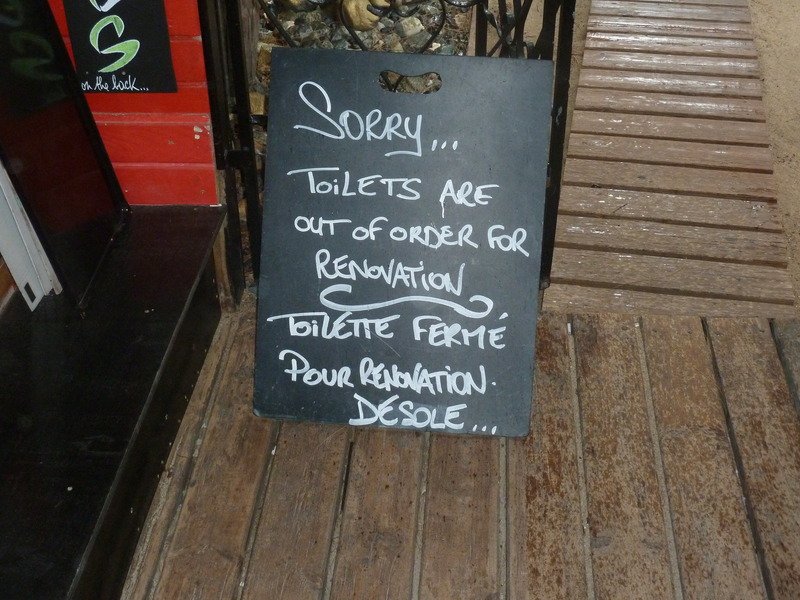 on the back...
SORRY...
TOiLETS ARE
OUT OF ORDER FOR
RENOVATION
TOILÉTTE FERMÉ
POUR RENOVATION.
DÉSOLE...